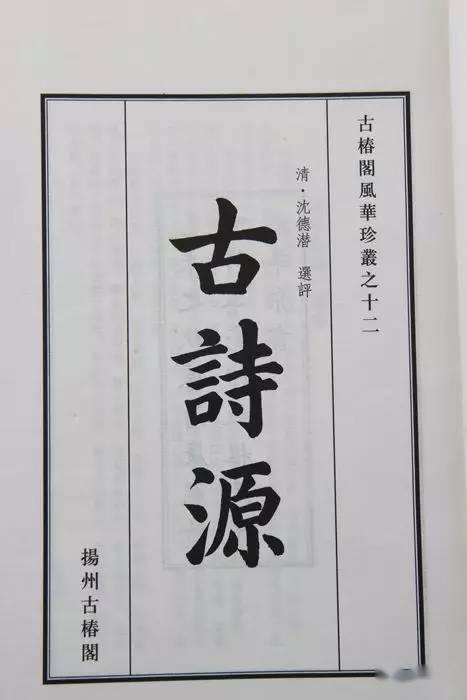 古椿閣風華珍叢之十二
清·沈德潜 選評
古詩源
揚州古椿閣